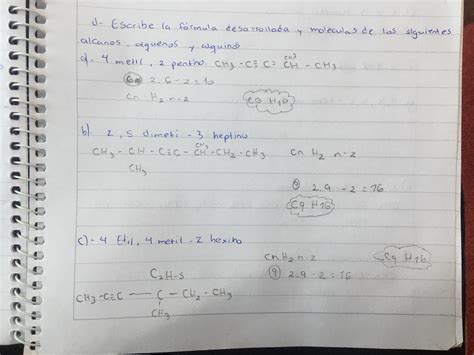 d.- Escribe la fórmula desarrollada y moleculas de los siguientes
alcanos, alquenos y alquinos
a) 4 metil, 2 pentno. CH3 -C≡C- CH - CH3
CH3
2.6-2=10
Cn H2 n-2
C6 H10
b). 2, 5 dimetil - 3 heptino
CH3
CH3 - CH - C≡C - CH - CH2 - CH3 Cn H2 n-2
CH3
9 2.9 -2 = 16
C9 H16
c).- 4 Etil, 4 metil - 2 hexino
Cn H2 n-2 C9 H16
C2H-5 9 2.9 -2 = 16
CH3 - C≡C - C - CH2 - CH3
CH3